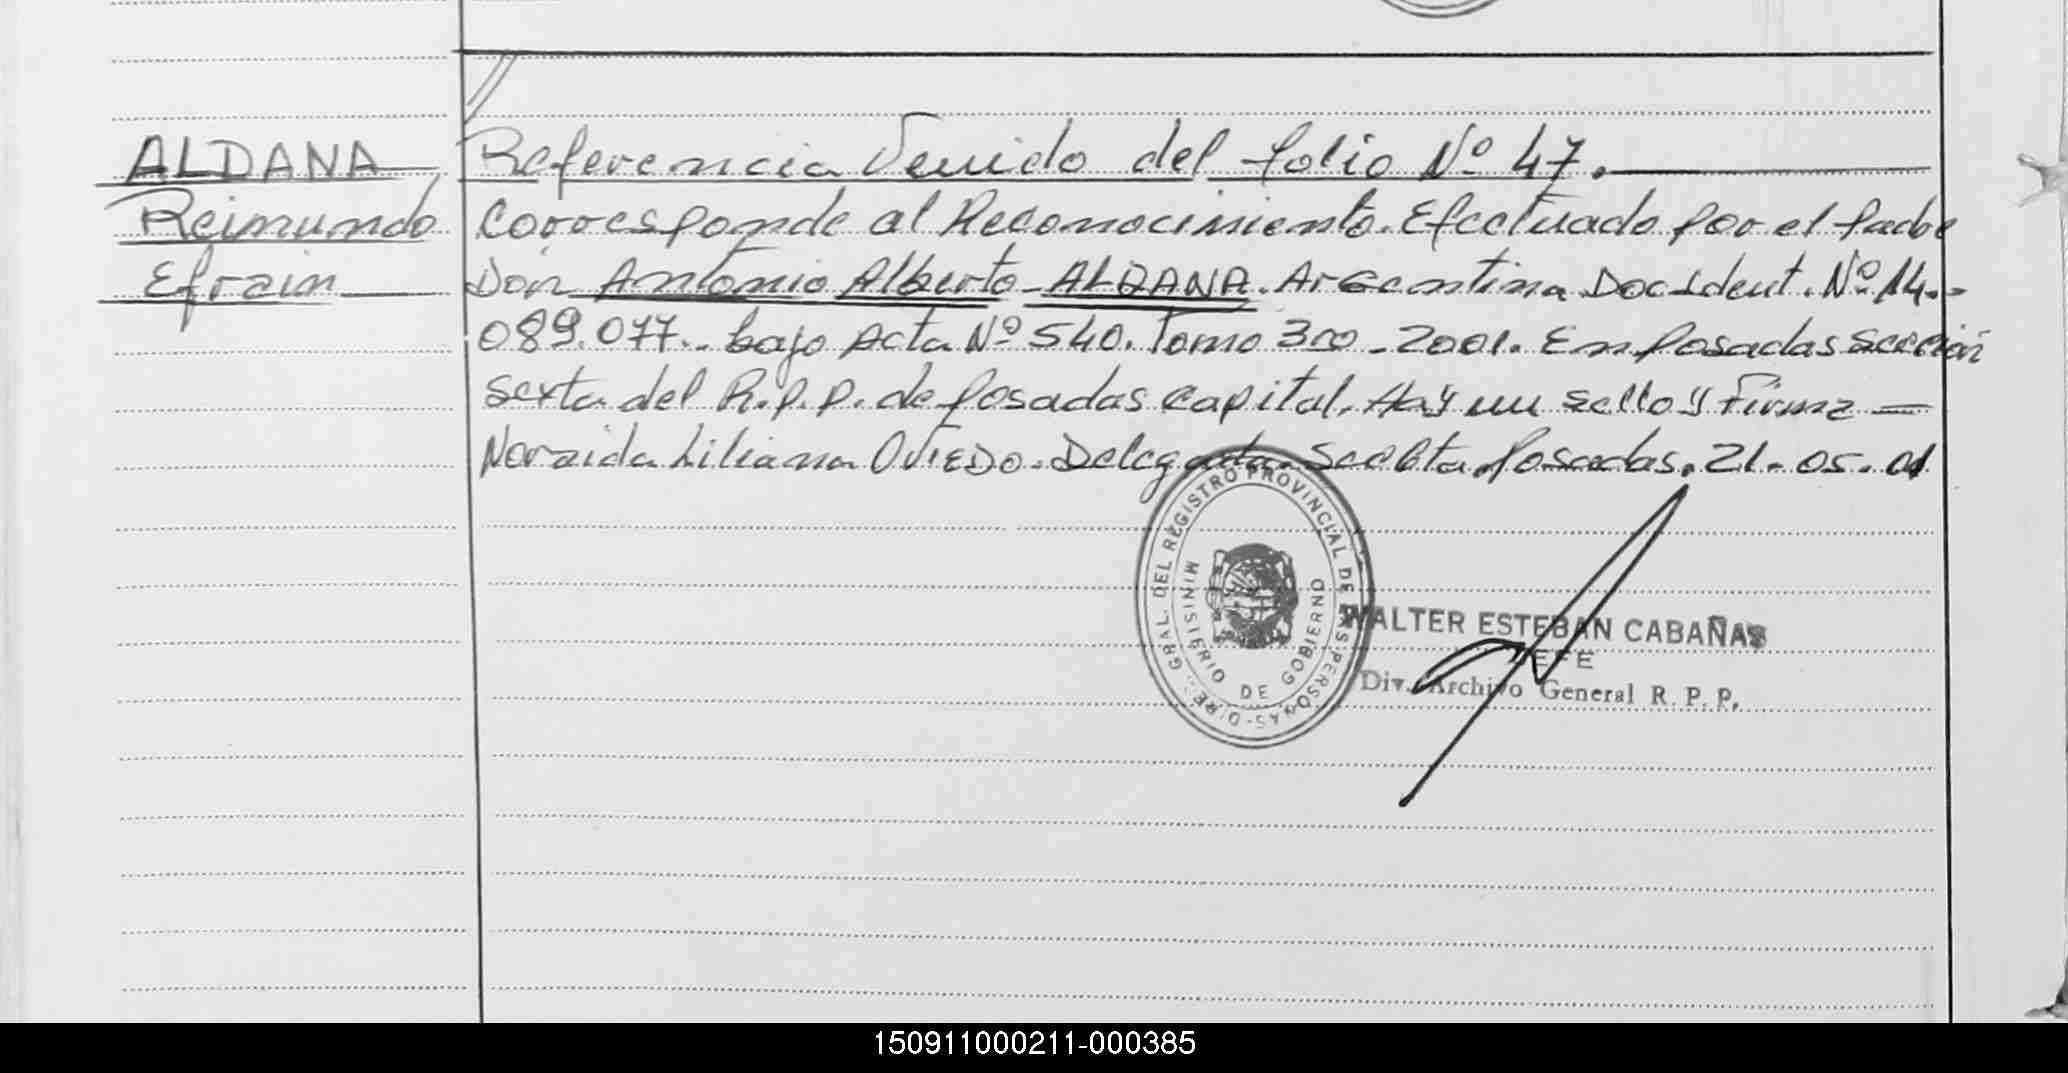 ALDANA
Reimundo
Efrain
Referencia Venido del folio Nº 47.
Corresponde al Reconocimiento. Efectuado por el padre
Don Antonio Alberto - ALDANA. Argentina Doc. Ident. Nº 14.-
089.077.- bajo Acta Nº 540. Tomo 3ro - 2001. En Posadas Sección
Sexta del R.P.P. de Posadas Capital. Hay un sello y Firma —
Liliana OVIEDO. Delegada Posadas. 21-05-01
DIREC. GRAL. DEL REGISTRO PROVINCIAL DE LAS PERSONAS
MINISTERIO DE GOBIERNO
WALTER ESTEBAN CABAÑAS
JEFE
Div. Archivo General R. P. P.
150911000211-000385